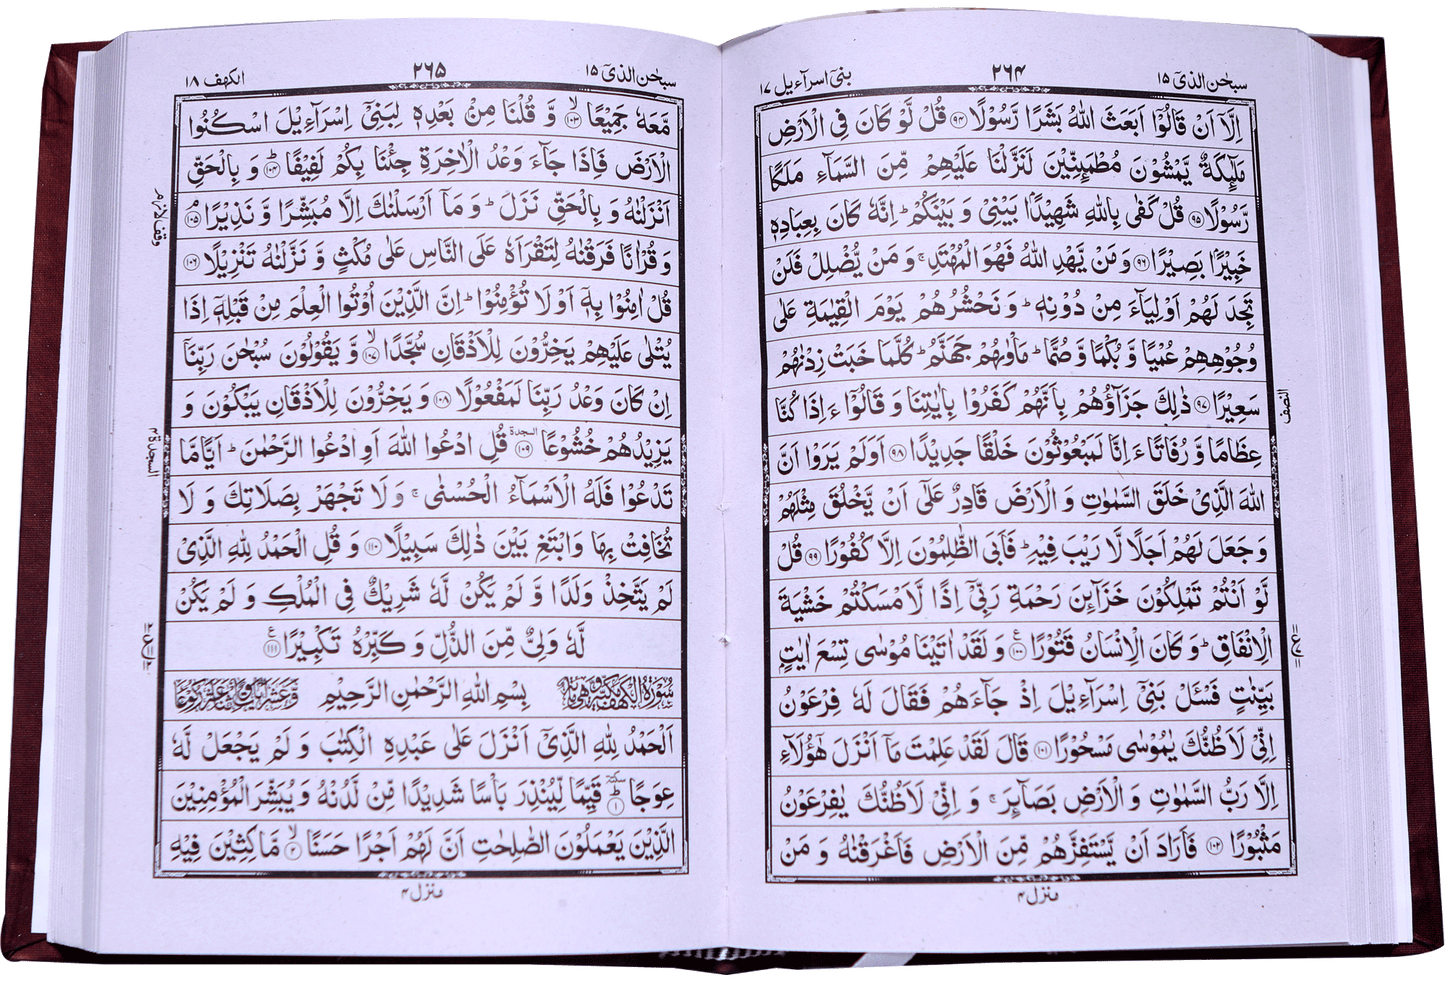 سبحٰن الذیٓ ۱۵
۲۶۴
بنیٓ اسرآءیل ۱۷
اِلَّاۤ اَنْ قَالُوْۤا اَبَعَثَ اللّٰهُ بَشَرًا رَّسُوْلًا ﴿۹۴﴾ قُلْ لَّوْ كَانَ فِی الْاَرْضِ
مَلٰٓىِٕكَةٌ یَّمْشُوْنَ مُطْمَىِٕنِّیْنَ لَنَزَّلْنَا عَلَیْهِمْ مِّنَ السَّمَآءِ مَلَكًا
رَّسُوْلًا ﴿۹۵﴾ قُلْ كَفٰى بِاللّٰهِ شَهِیْدًۢا بَیْنِیْ وَ بَیْنَكُمْ ؕ اِنَّهٗ كَانَ بِعِبَادِهٖ
خَبِیْرًۢا بَصِیْرًا ﴿۹۶﴾ وَ مَنْ یَّهْدِ اللّٰهُ فَهُوَ الْمُهْتَدِ ۚ وَ مَنْ یُّضْلِلْ فَلَنْ
تَجِدَ لَهُمْ اَوْلِیَآءَ مِنْ دُوْنِهٖ ؕ وَ نَحْشُرُهُمْ یَوْمَ الْقِیٰمَةِ عَلٰى
وُجُوْهِهِمْ عُمْیًا وَّ بُكْمًا وَّ صُمًّا ؕ مَاْوٰىهُمْ جَهَنَّمُ ؕ كُلَّمَا خَبَتْ زِدْنٰهُمْ
سَعِیْرًا ﴿۹۷﴾ ذٰلِكَ جَزَآؤُهُمْ بِاَنَّهُمْ كَفَرُوْا بِاٰیٰتِنَا وَ قَالُوْۤا ءَاِذَا كُنَّا
النصف
عِظَامًا وَّ رُفَاتًا ءَاِنَّا لَمَبْعُوْثُوْنَ خَلْقًا جَدِیْدًا ﴿۹۸﴾ اَوَلَمْ یَرَوْا اَنَّ
اللّٰهَ الَّذِیْ خَلَقَ السَّمٰوٰتِ وَ الْاَرْضَ قَادِرٌ عَلٰۤى اَنْ یَّخْلُقَ مِثْلَهُمْ
وَ جَعَلَ لَهُمْ اَجَلًا لَّا رَیْبَ فِیْهِ ؕ فَاَبَى الظّٰلِمُوْنَ اِلَّا كُفُوْرًا ﴿۹۹﴾ قُلْ
لَّوْ اَنْتُمْ تَمْلِكُوْنَ خَزَآىِٕنَ رَحْمَةِ رَبِّیْۤ اِذًا لَّاَمْسَكْتُمْ خَشْیَةَ
الْاِنْفَاقِ ؕ وَ كَانَ الْاِنْسَانُ قَتُوْرًا ﴿۱۰۰﴾ وَ لَقَدْ اٰتَیْنَا مُوْسٰى تِسْعَ اٰیٰتٍۭ
بَیِّنٰتٍ فَسْـَٔلْ بَنِیْۤ اِسْرَآءِیْلَ اِذْ جَآءَهُمْ فَقَالَ لَهٗ فِرْعَوْنُ
اِنِّیْ لَاَظُنُّكَ یٰمُوْسٰى مَسْحُوْرًا ﴿۱۰۱﴾ قَالَ لَقَدْ عَلِمْتَ مَاۤ اَنْزَلَ هٰۤؤُلَآءِ
اِلَّا رَبُّ السَّمٰوٰتِ وَ الْاَرْضِ بَصَآىِٕرَ ۚ وَ اِنِّیْ لَاَظُنُّكَ یٰفِرْعَوْنُ
مَثْبُوْرًا ﴿۱۰۲﴾ فَاَرَادَ اَنْ یَّسْتَفِزَّهُمْ مِّنَ الْاَرْضِ فَاَغْرَقْنٰهُ وَ مَنْ
منزل ۴
سبحٰن الذیٓ ۱۵
۲۶۵
الكهف ۱۸
مَّعَهٗ جَمِیْعًا ﴿۱۰۳﴾ ۙ وَّ قُلْنَا مِنْۢ بَعْدِهٖ لِبَنِیْۤ اِسْرَآءِیْلَ اسْكُنُوا
الْاَرْضَ فَاِذَا جَآءَ وَعْدُ الْاٰخِرَةِ جِئْنَا بِكُمْ لَفِیْفًا ﴿۱۰۴﴾ ؕ وَ بِالْحَقِّ
اَنْزَلْنٰهُ وَ بِالْحَقِّ نَزَلَ ؕ وَ مَاۤ اَرْسَلْنٰكَ اِلَّا مُبَشِّرًا وَّ نَذِیْرًا ﴿۱۰۵﴾ ۘ
وقف لازم
وَ قُرْاٰنًا فَرَقْنٰهُ لِتَقْرَاَهٗ عَلَى النَّاسِ عَلٰى مُكْثٍ وَّ نَزَّلْنٰهُ تَنْزِیْلًا ﴿۱۰۶﴾
قُلْ اٰمِنُوْا بِهٖۤ اَوْ لَا تُؤْمِنُوْا ؕ اِنَّ الَّذِیْنَ اُوْتُوا الْعِلْمَ مِنْ قَبْلِهٖۤ اِذَا
یُتْلٰى عَلَیْهِمْ یَخِرُّوْنَ لِلْاَذْقَانِ سُجَّدًا ﴿۱۰۷﴾ ۙ وَّ یَقُوْلُوْنَ سُبْحٰنَ رَبِّنَاۤ
اِنْ كَانَ وَعْدُ رَبِّنَا لَمَفْعُوْلًا ﴿۱۰۸﴾ وَ یَخِرُّوْنَ لِلْاَذْقَانِ یَبْكُوْنَ وَ
یَزِیْدُهُمْ خُشُوْعًا ﴿۱۰۹﴾ السجدة قُلِ ادْعُوا اللّٰهَ اَوِ ادْعُوا الرَّحْمٰنَ ؕ اَیًّامَّا
السجدة ۴
تَدْعُوْا فَلَهُ الْاَسْمَآءُ الْحُسْنٰى ۚ وَ لَا تَجْهَرْ بِصَلَاتِكَ وَ لَا
تُخَافِتْ بِهَا وَ ابْتَغِ بَیْنَ ذٰلِكَ سَبِیْلًا ﴿۱۱۰﴾ وَ قُلِ الْحَمْدُ لِلّٰهِ الَّذِیْ
لَمْ یَتَّخِذْ وَلَدًا وَّ لَمْ یَكُنْ لَّهٗ شَرِیْكٌ فِی الْمُلْكِ وَ لَمْ یَكُنْ
لَّهٗ وَلِیٌّ مِّنَ الذُّلِّ وَ كَبِّرْهُ تَكْبِیْرًا ﴿۱۱۱﴾
بِسْمِ اللّٰهِ الرَّحْمٰنِ الرَّحِیْمِ
اَلْحَمْدُ لِلّٰهِ الَّذِیْۤ اَنْزَلَ عَلٰى عَبْدِهِ الْكِتٰبَ وَ لَمْ یَجْعَلْ لَّهٗ
عِوَجًا ﴿۱﴾ ؕ سكتة قَیِّمًا لِّیُنْذِرَ بَاْسًا شَدِیْدًا مِّنْ لَّدُنْهُ وَ یُبَشِّرَ الْمُؤْمِنِیْنَ
الَّذِیْنَ یَعْمَلُوْنَ الصّٰلِحٰتِ اَنَّ لَهُمْ اَجْرًا حَسَنًا ﴿۲﴾ ۙ مَّاكِثِیْنَ فِیْهِ
منزل ۴